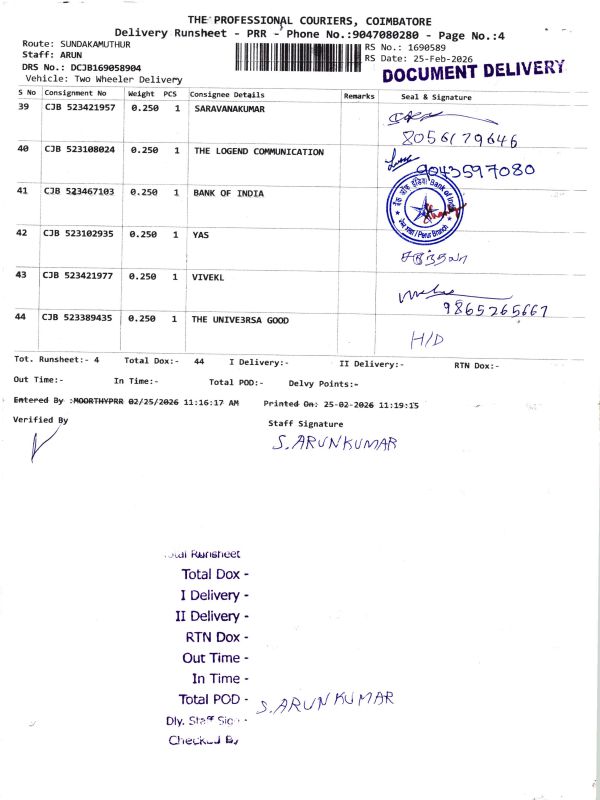 THE PROFESSIONAL COURIERS, COIMBATORE
Delivery Runsheet - PRR - Phone No.:9047080280 - Page No.:4
Route: SUNDAKAMUTHUR
RS No.: 1690589
Staff: ARUN
RS Date: 25-Feb-2026
DRS No.: DCJB169058904
DOCUMENT DELIVERY
Vehicle: Two Wheeler Delivery
S No Consignment No Weight PCS Consignee Details Remarks Seal & Signature
39 CJB 523421957 0.250 1 SARAVANAKUMAR
8056179646
40 CJB 523108024 0.250 1 THE LOGEND COMMUNICATION
9043597080
41 CJB 523467103 0.250 1 BANK OF INDIA
Bank of India
Perur Branch
42 CJB 523102935 0.250 1 YAS
43 CJB 523421977 0.250 1 VIVEKL
9865265667
44 CJB 523389435 0.250 1 THE UNIVE3RSA GOOD H/D
Tot. Runsheet:- 4 Total Dox:- 44 I Delivery:- II Delivery:- RTN Dox:-
Out Time:- In Time:- Total POD:- Delvy Points:-
Entered By :MOORTHYPRR 02/25/2026 11:16:17 AM Printed On: 25-02-2026 11:19:15
Verified By Staff Signature
S. ARUNKUMAR
Total Runsheet
Total Dox -
I Delivery -
II Delivery -
RTN Dox -
Out Time -
In Time -
Total POD - S. ARUNKUMAR
Dly. Staff Sig -
Checked By